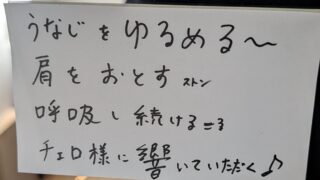 うなじをゆるめる〜
肩をおとす ストン
呼吸し続ける=3
チェロ様に響いていただく♪